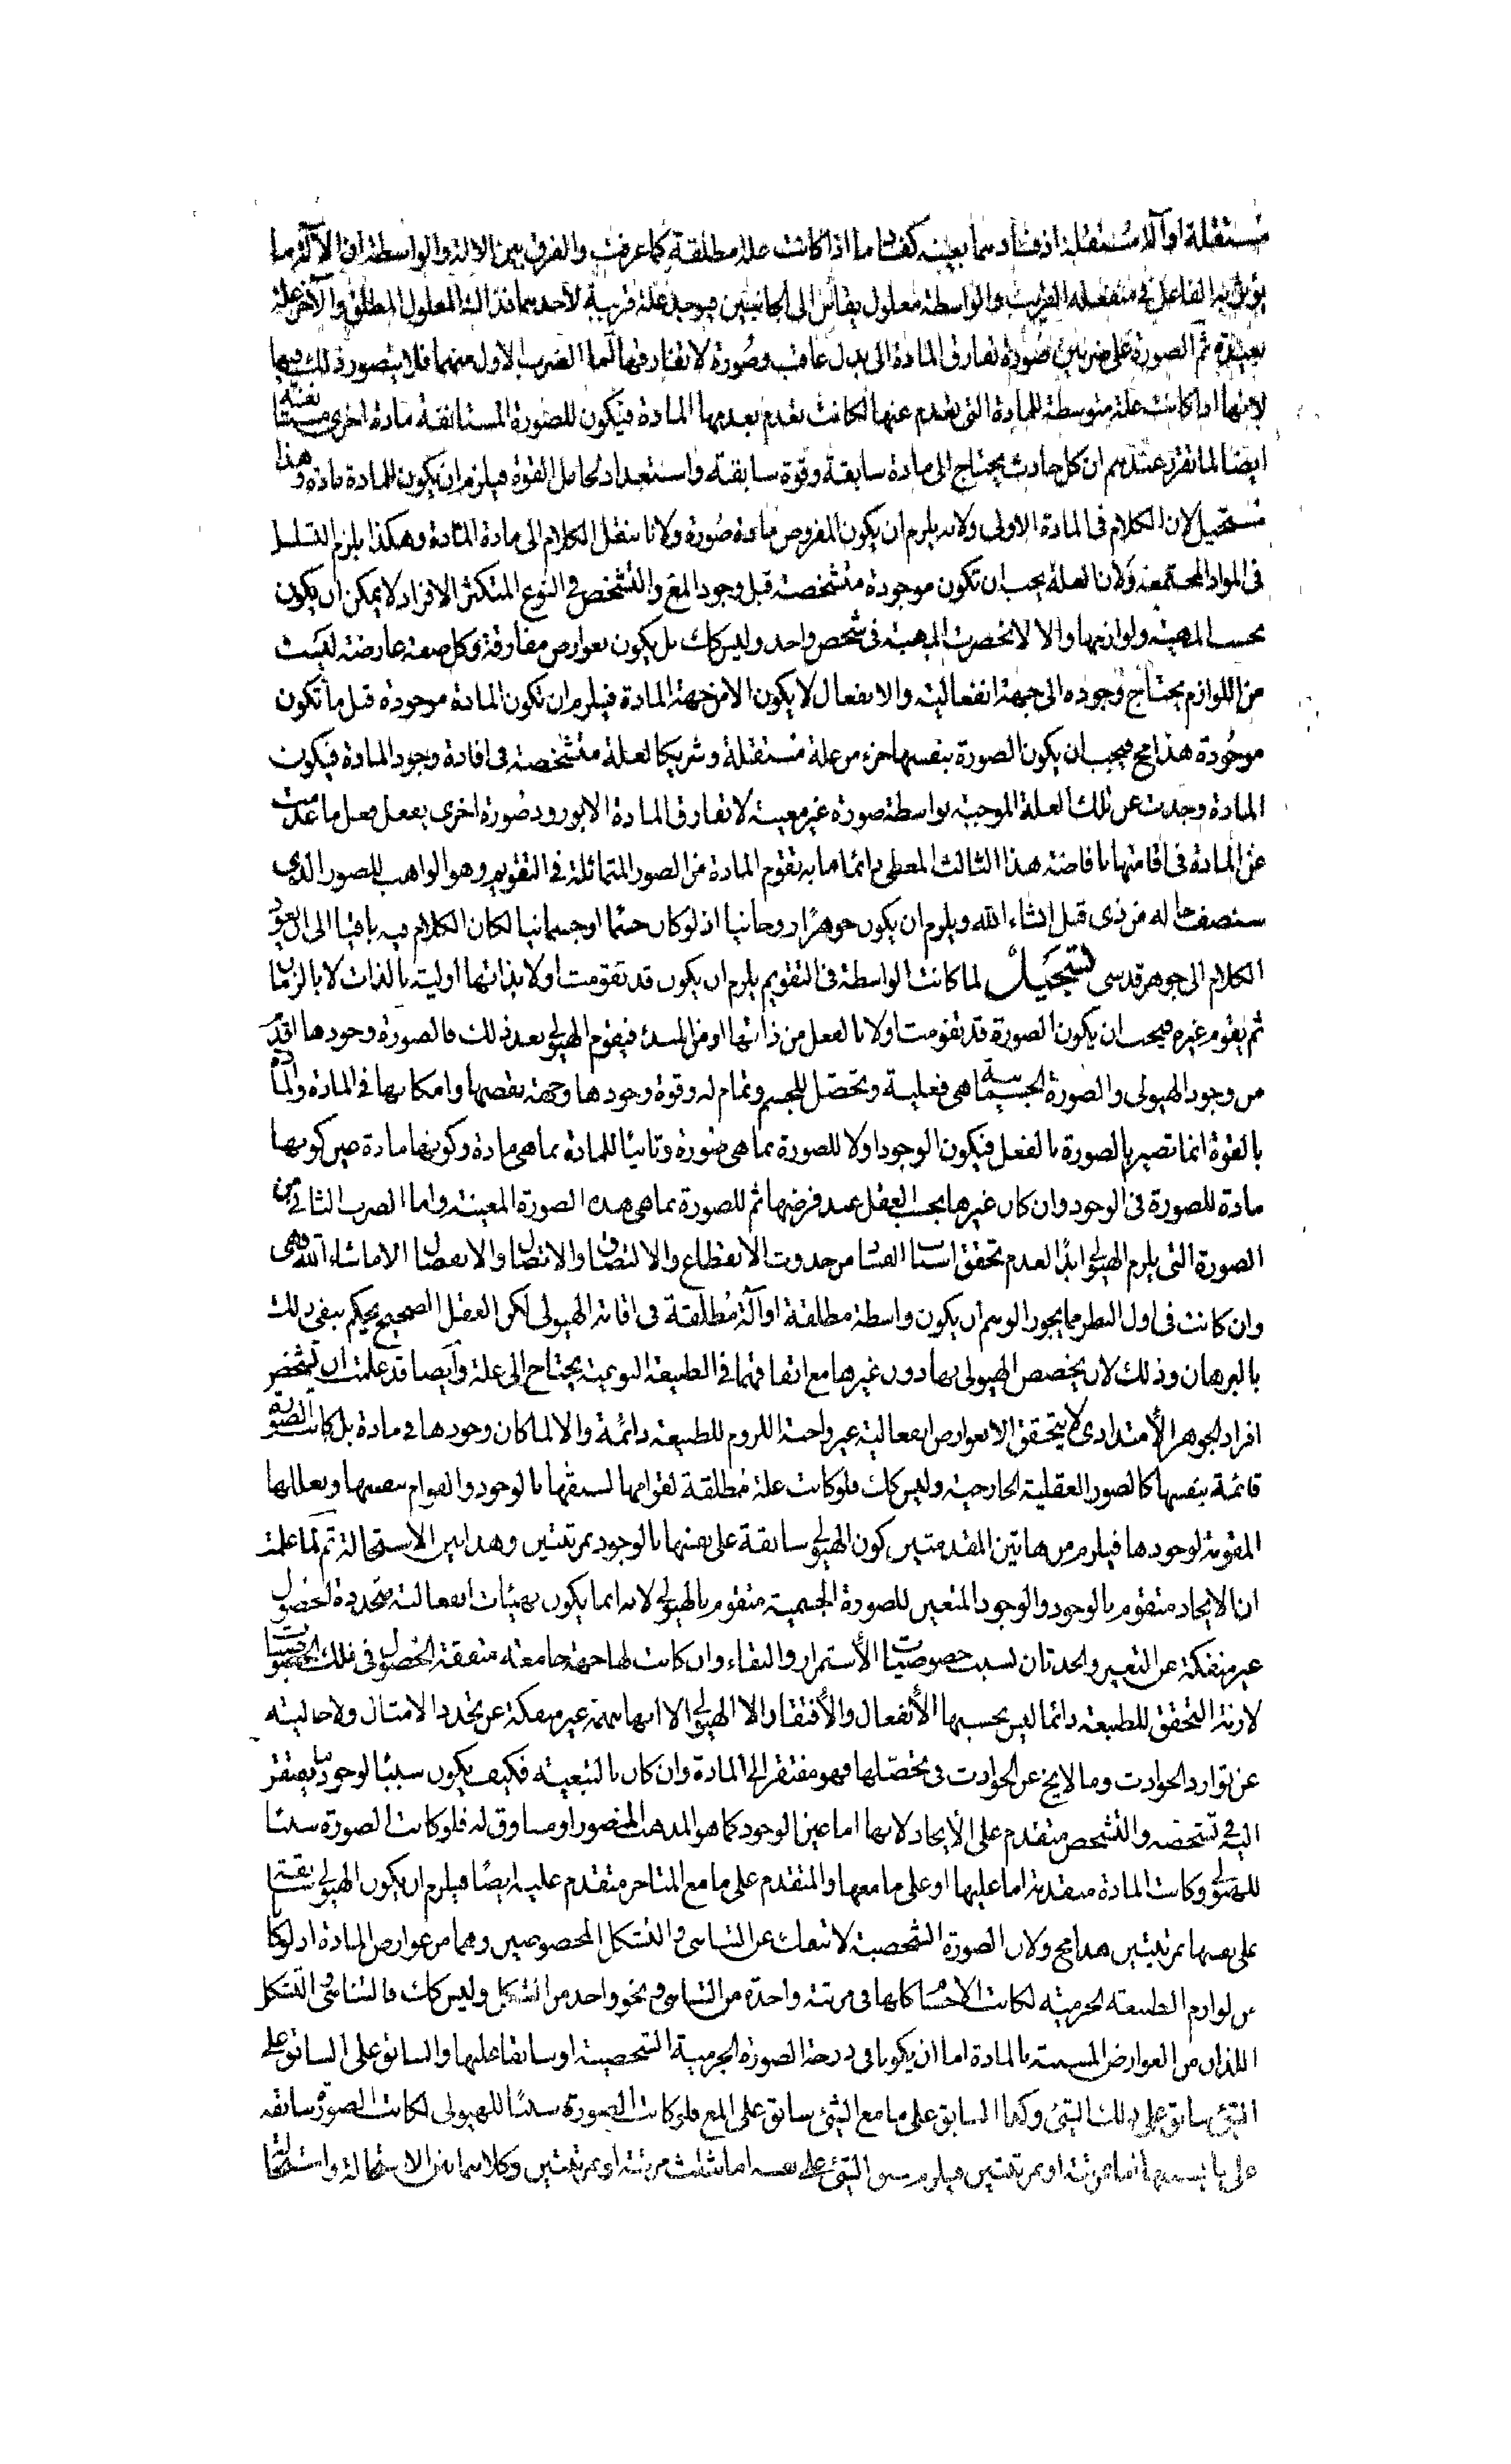 مستقلة او آلة مستقلة اذ فساد بما بعينه كفسادها اذا كانت علة مطلقة كما عرفت والفرق بين الالة والواسطة ان الآلة ما
يؤثر به الفاعل في منفعله القريب والواسطة معلول يقاس الى الجانبين فيوجد علة قريبة لاحدهما فذلك المعلول المطلق والآخر علة
بعيدة ثم الصورة على ضربين صورة تفارق المادة الى بدل عاقب وصورة لا تفارقها اما الضرب الاول منهما فلا يتصور ذلك فيها
لانها اذا كانت علة متوسطة للمادة التي تعدم عنها لكانت تعدم بعدمها المادة فيكون للصورة المستانفة مادة اخرى مستانفة
ايضا لما تقرر عندهم ان كل حادث يحتاج الى مادة سابقة وقوة سابقة واستعداد لحامل القوة فيلزم ان يكون للمادة مادة وهذا
مستحيل لان الكلام في المادة الاولى ولانه يلزم ان يكون المفروض مادة صورة ولانا ننقل الكلام الى مادة المادة وهكذا يلزم التسلسل
في المواد المجتمعة ولان العلة يجب ان تكون موجودة متشخصة قبل وجود المع والتشخص في النوع المتكثر الافراد لا يمكن ان يكون
بحسب المهية ولوازمها والا لانحصرت المهية في شخص واحد وليس كك بل يكون بعوارض مفارقة وكل صفة عارضة ليست
من اللوازم يحتاج وجوده الى جهة انفعالية والانفعال لا يكون الا من جهة المادة فيلزم ان تكون المادة موجودة قبل ما تكون
موجودة هذا مح فيجب ان يكون الصورة بنفسها جزء من علة مستقلة وشريكا لعلة متشخصة في افادة وجود المادة فيكون
المادة وجدت عن تلك العلة الموجبة بواسطة صورة غير معينة لا تفارق المادة الا بورود صورة اخرى يفعل فعل ما عدمت
عن المادة في اقامتها بافاضة هذا الثالث المعطي دائما ما به تقوم المادة من الصور المتماثلة في التقويم وهو الواهب للصور الذي
سنصف حاله من ذي قبل انشاء الله ويلزم ان يكون جوهرا روحانيا اذ لو كان جسما او جسمانيا لكان الكلام فيه باقيا الى ان يعود
الكلام الى جوهر قدسي تسجيل لما كانت الواسطة في التقويم يلزم ان يكون قد تقومت اولا بذاتها اولية بالذات لا بالزمان
ثم يقوم غيره فيجب ان يكون الصورة قد تقومت اولا بالفعل من ذاتها او من المبدء فيقوم الهيولى بعد ذلك فالصورة وجودها اقدم
من وجود الهيولى والصورة الجسمية بما هي فعلية وتحصل للجسم وتمام له وقوة وجودها وجهة نقصها وامكانها في المادة والمادة
بالقوة انما تصير بالصورة بالفعل فيكون الوجود اولا للصورة بما هي صورة وثانيا للمادة بما هي مادة وكونها مادة عين كونها
مادة للصورة في الوجود وان كان غيرها بحسب العقل عند فرضها ثم للصورة بما هي هذه الصورة المعينة واما الضرب الثاني من
الصورة التي يلزم الهيولى ابدا لعدم تحقق اسباب الفساد من حدوث الانقطاع والالتصاق والاتصال والانفصال الا ماشاء الله وهي
وان كانت في اول النظر مما يجوز الوهم ان يكون واسطة مطلقة او آلة مطلقة في اقامة الهيولى لكن العقل الصحيح يحكم بنفي ذلك
بالبرهان وذلك لان يخصص الهيولى بها دون غيرها مع اتفاقهما في الطبيعة النوعية يحتاج الى علة وايضا قد علمت ان تشخص
افراد الجوهر الامتدادي لا يتحقق الا بعوارض انفعالية غير واجبة اللزوم للطبيعة دائمة والا لما كان وجودها في مادة بل كانت الصورة
قائمة بنفسها كالصور العقلية الخارجية وليس كك فلو كانت علة مطلقة لقوامها لسبقها بالوجود والقوام بنفسها وبعللها
المقومة لوجودها فيلزم من هاتين المقدمتين كون الهيولى سابقة على نفسها بالوجود بمرتبتين وهذا بين الاستحالة ثم لما علمت
ان الايجاد متقوم بالوجود والوجود المتعين للصورة الجسمية متقوم بالهيولى لانه انما يكون بهيئات انفعالية متجددة الحصول
غير منفكة عن التغير والحدثان لسبب خصوصيات الاستمرار والبقاء وان كانت لها جهة جامعة متفقة الحصول في تلك الخصوصيات
لازمة التحقق للطبيعة دائما ليس بحسبها الانفعال والافتقار الا الهيولى الا انها مبهمة غير منفكة عن تجدد الامثال ولا خالية
عن توارد الحوادث وما لا يخ عن الحوادث في تحصلها فهو مفتقر الى المادة وان كان بالتبعية فكيف يكون سببا لوجود ما يفتقر
اليه في تشخصه والتشخص متقدم على الايجاد لانها اما عين الوجود كما هو المذهب المنصور او مساوق له فلو كانت الصورة سببا
للهيولى وكانت المادة متقدمة اما عليها او على ما معها والمتقدم على ما مع المتاخر متقدم عليه ايضا فيلزم ان يكون الهيولى سابقة
على نفسها بمرتبتين هذا مح ولان الصورة الشخصية لا تنفك عن التناهي والتشكل المخصوصين وهما من عوارض المادة اذ لو كانا
من لوازم الطبيعة الجرمية لكانت الاجسام كلها في مرتبة واحدة من التناهي ونحو واحد من التشكل وليس كك فالتناهي والتشكل
اللذان من العوارض المسببة بالمادة اما ان يكونا في درجة الصورة الجرمية الشخصية او سابقا عليها والسابق على السابق على
الشئ سابق على ذلك الشئ وكذا السابق على ما مع الشئ سابق على المع فلو كانت الصورة سببا للهيولى لكانت الصورة سابقة
على ما يسبقها اما بمرتبة او بمرتبتين فيلزم سبق الشئ على نفسه اما بثلث مرتبة او بمرتبتين وكلاهما بين الاستحالة